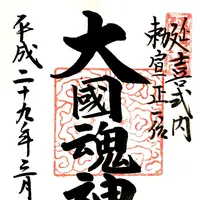 延喜式内
勅宣正一位
大國魂神
平成二十九年三月